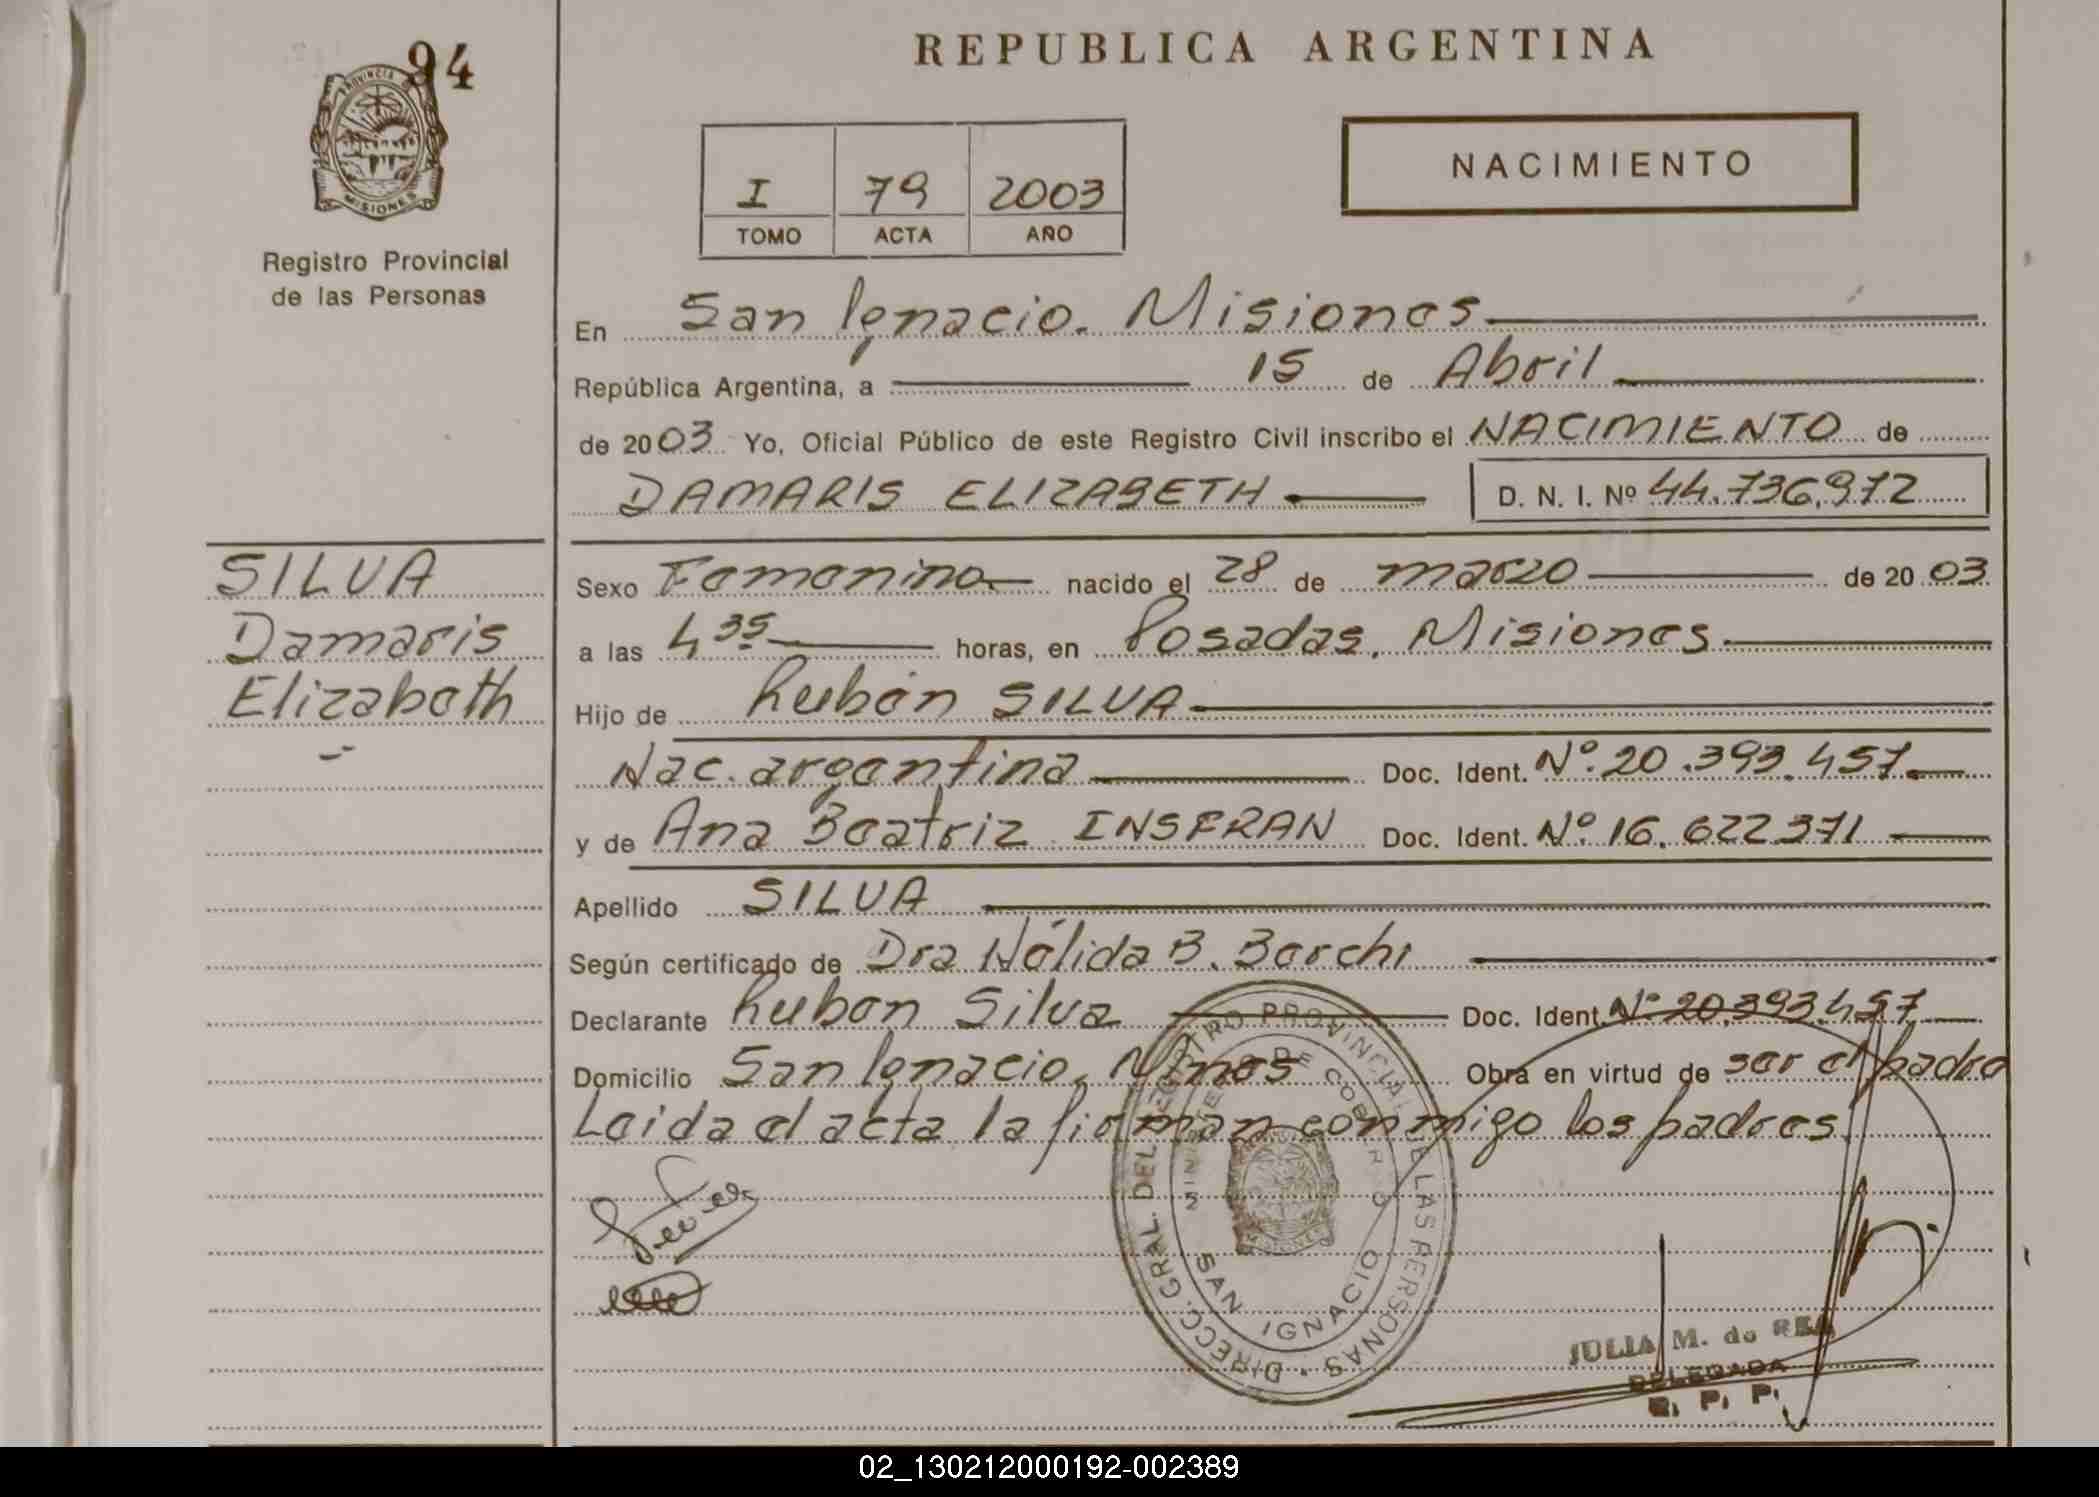 94
PROVINCIA
MISIONES
Registro Provincial
de las Personas
REPUBLICA ARGENTINA
I 79 2003
TOMO ACTA AÑO
NACIMIENTO
En San Ignacio. Misiones
República Argentina, a 15 de Abril
de 2003 Yo, Oficial Público de este Registro Civil inscribo el NACIMIENTO de
DAMARIS ELIZABETH D. N. I. Nº 44.736.972
SILVA
Damaris
Elizabeth
Sexo Femenino nacido el 28 de marzo de 2003
a las 4 35 horas, en Posadas. Misiones
Hijo de Rubén SILVA
Nac. argentina Doc. Ident. Nº. 20.393.457
y de Ana Beatriz INSFRAN Doc. Ident. Nº. 16.622.371
Apellido SILVA
Según certificado de Dra Nélida B. Berchi
Declarante Ruben Silva Doc. Ident. Nº 20.393.457
Domicilio San Ignacio, Mnes Obra en virtud de ser el padre
Leida el acta la firman conmigo los padres.
DIRECC. GRAL. DEL REGISTRO PROVINCIAL DE LAS PERSONAS
MINISTERIO DE GOBIERNO
MISIONES
SAN IGNACIO
JULIA M. de REA
DELEGADA
R. P. P.
02_130212000192-002389